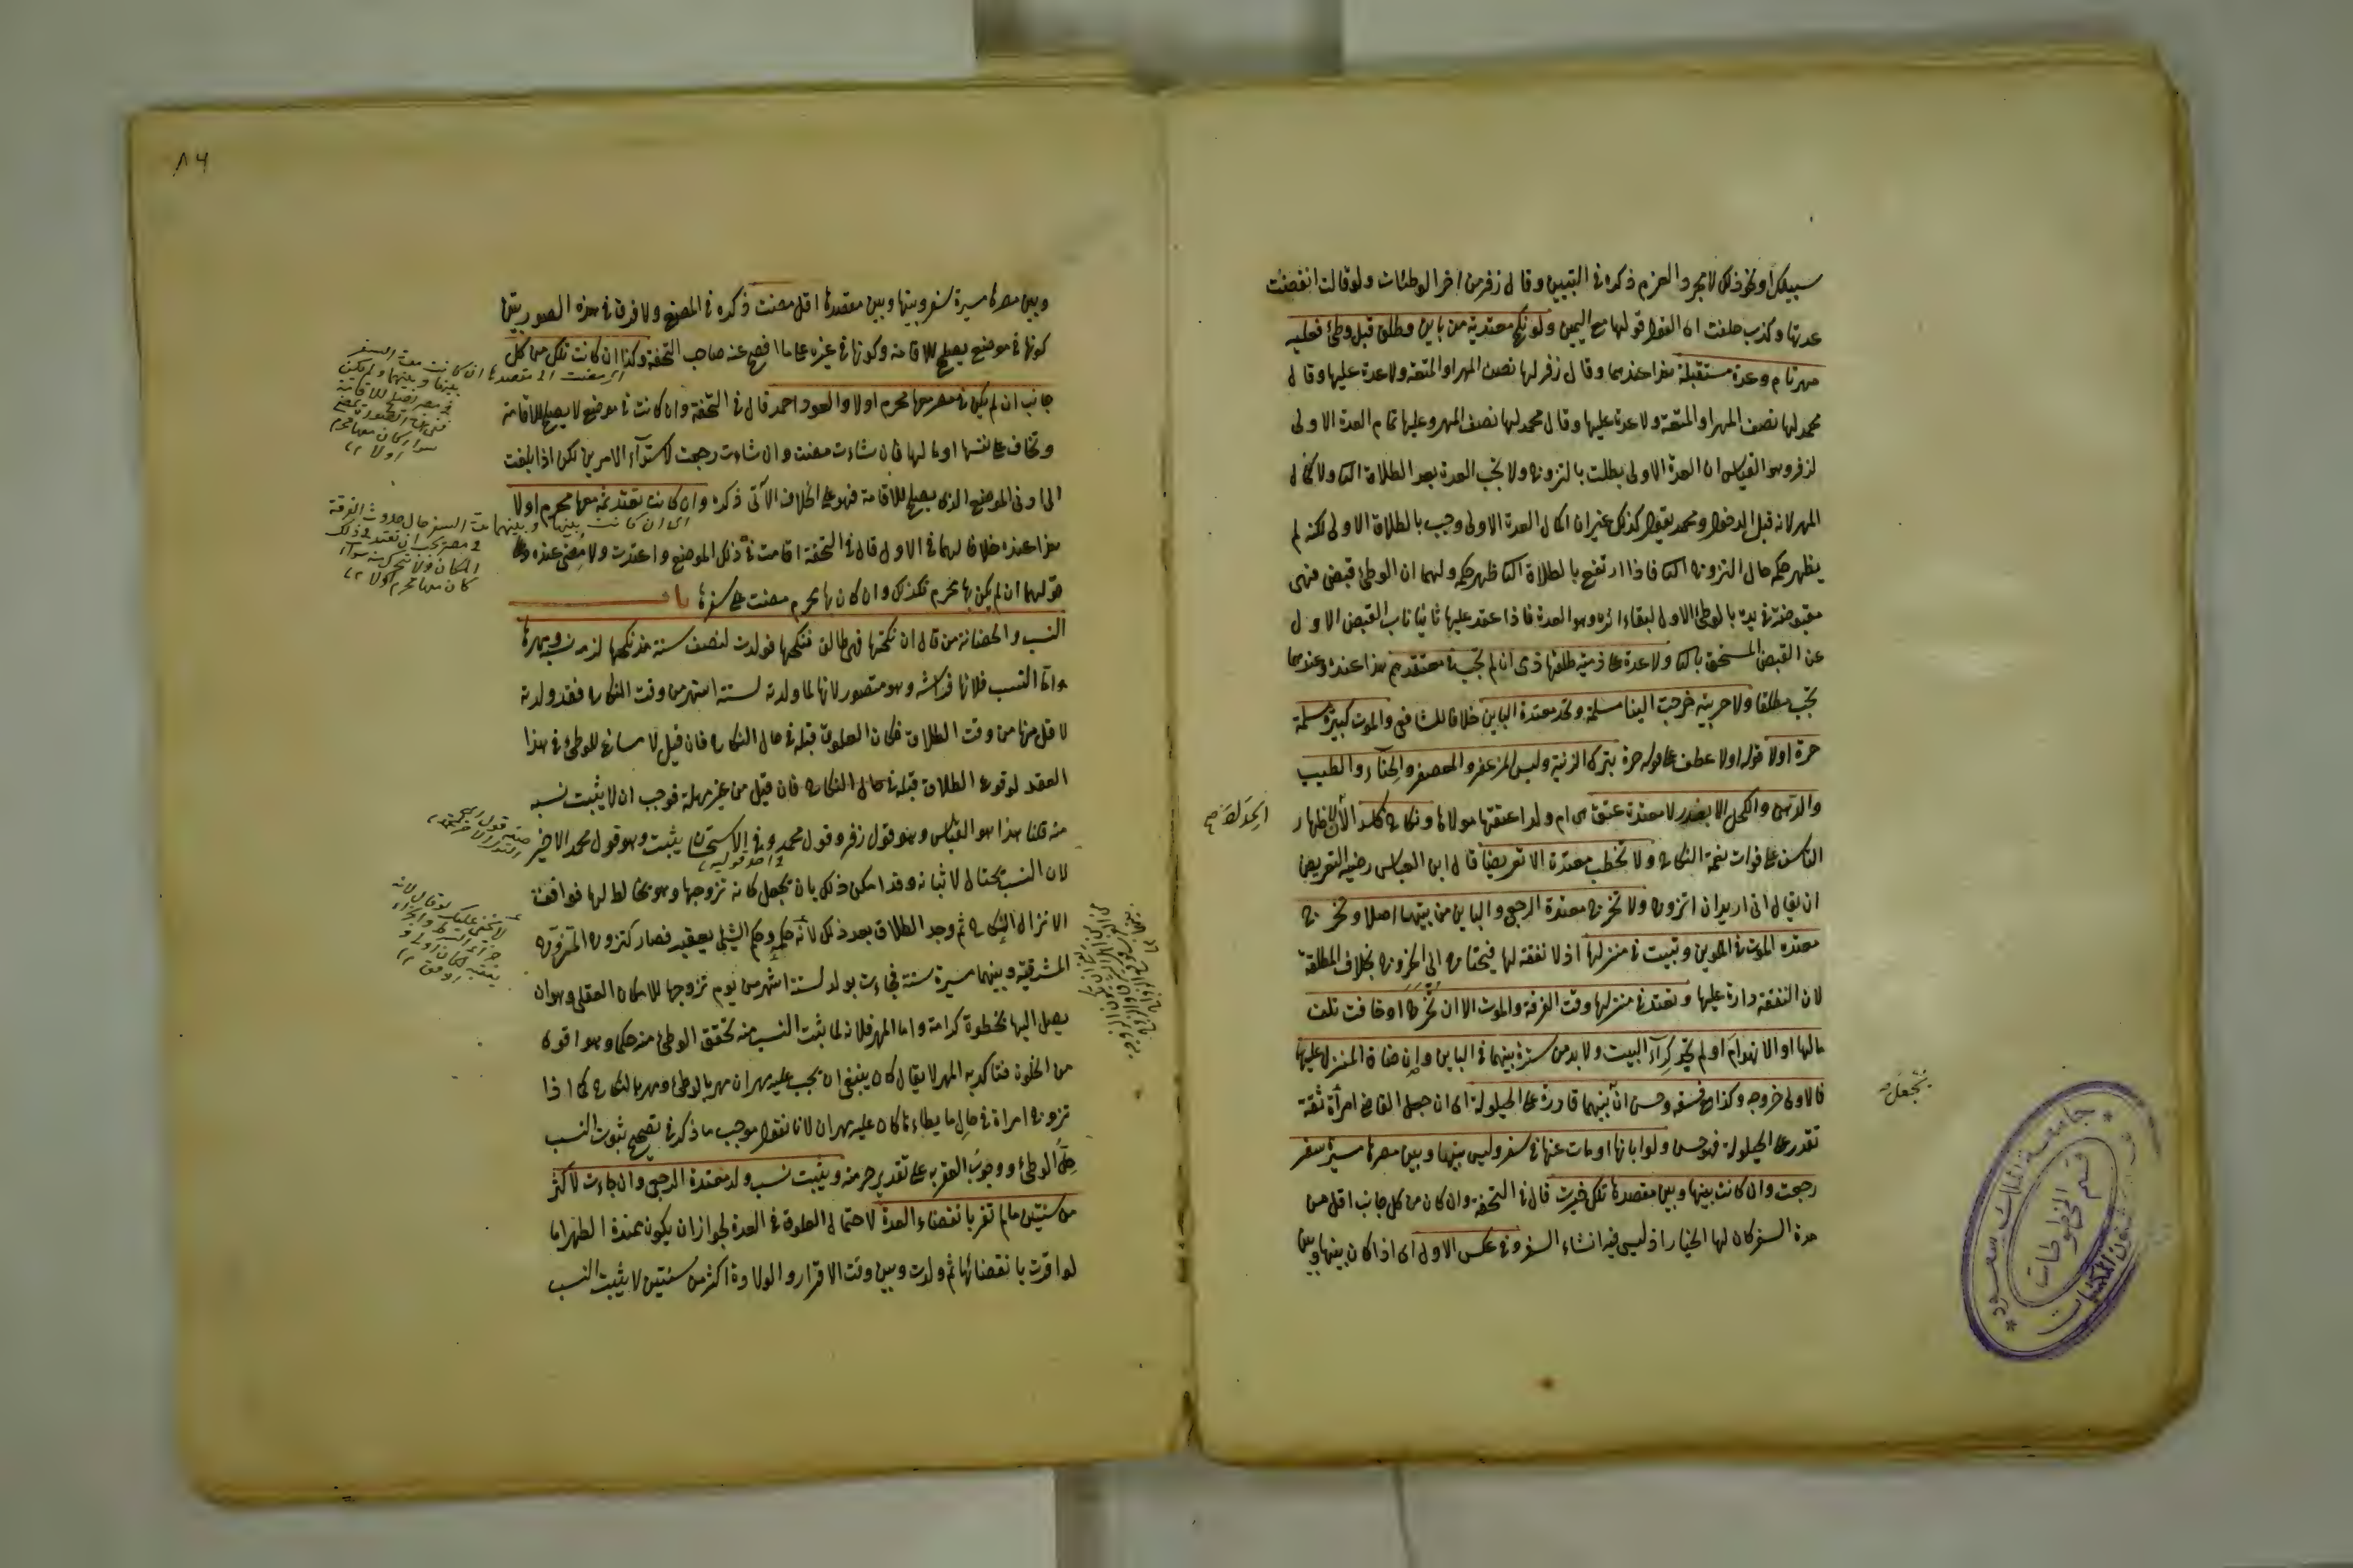 سبيلك او نحو ذلك لا مجرد العزم ذكره في التبيين وقال زفر من اخر الوطئات ولو قالت انقضت
عدتها وكذب حلفت لان القول قولها مع اليمين ولو نكح معتدته من باين وطلق قبل وطئ فعليه
مهر تام وعدة مستقبلة هذا عندهما وقال زفر لها نصف المهر او المتعة ولا عدة عليها وقال
محمد لها نصف المهر او المتعة ولا عدة عليها وقال محمد لها نصف المهر وعليها تمام العدة الاولى
لزفر وهو القياس ان العدة الاولى بطلت بالتزوج ولا تجب العدة بعد الطلاق الثا ولا كمال
المهر لانه قبل الدخول ومحمد يقول كذلك غير ان اكمال العدة الاولى وجب بالطلاق الاولى لكنه لم
يظهر حكمه حال التزوج الثا فاذا ارتفع بالطلاق الثا ظهر حكمه ولهما ان الوطئ قبض فهي
مقبوضة في يده بالوطئ الاول لبقاء اثره وهو العدة فاذا عقد عليها ثانيا ناب القبض الاول
عن القبض المستحق بالثا ولا عدة على ذمية طلقها ذمى ان لم تجب في معتقدهم هذا عنده وعندهما
تجب مطلقا ولا حربية خرجت الينا مسلمة وتحد معتدة الباين خلافا للشافعي والموت كبيرة مسلمة
حرة اولا قوله اولا عطف على قوله حرة بترك الزينة ولبس المزعفر والمعصفر والحناء والطيب
والدهن والكحل الا بعذر لا معتدة عتق هى ام ولد اعتقها مولاها ونكاح فاسد لان اظهار
التاسف على فوات نعمة النكاح ولا تخطب معتدة الا تعريضا قال ابن العباس رضيه التعريض
ان يقال انى اريد ان اتزوج ولا تخرج معتدة الرجعى والباين من بيتهما اصلا وتخرج
معتدة الموت في الملوين وتبيت في منزلها اذ لا نفقة لها فيحتاج الى الخروج بخلاف المطلقة
لان النفقة دارة عليها وتعتد في منزلها وقت الفرقة والموت الا ان تخرج او خافت تلف
مالها او الانهدام او لم تجد كراء البيت ولا بد من سترة بينهما في الباين وان ضاق المنزل عليها
فالاولى خروجه وكذا مع فسقه وحسن ان بينهما قادرة على الحيلولة اى ان جعل القاضى امرأة ثقة
تقدر على الحيلولة فهو حسن ولو ابانها او مات عنها في سفر وليس بينها وبين مصرها مسيرة سفر
رجعت وان كانت بينها وبين مقصدها تلك خيرت قال في التحفة وان كان من كل جانب اقل من
مدة السفر كان لها الخيار اذ ليس فيه انشاء السفر وفي عكس الاول اى اذا كان بينها وبين
تجعل
٨٤
وبين مصرها مسيرة سفر وبينها وبين مقصدها اقل مضت ذكره في المصفى ولا فرق في هذه الصور بين
كونها في موضع يصلح للاقامة وكونها في غيره على ما افصح عنه صاحب التحفة وكذا ان كانت تلك من كل
جانب ان لم يكن في مصر معها محرم اولا والعود احمد قال في التحفة وان كانت في موضع لا يصلح للاقامة
وتخاف على نفسها او مالها فان شاءت مضت وان شاءت رجعت لاستواء الامرين لكن اذا بلغت
الى ادنى المواضع الذى يصلح للاقامة فهو على الخلاف الآتى ذكره وان كانت تعتد ثمه معها محرم اولا
هذا عنده خلافا لهما في الاول قال في التحفة اقامت في ذلك الموضع واعتدت ولا تمضى عنده وعلى
قولهما ان لم يكن لها محرم فكذلك وان كان لها محرم مضت على سفرها باب
النسب والحضانة من قال ان نكحتها فهى طالق فنكحها فولدت لنصف سنة منذ نكحها لزمه نسبه ومهرها
واما النسب فلانها فراشه وهو متصور لانها لما ولدته لستة اشهر من وقت النكاح فقد ولدته
لاقل منها من وقت الطلاق فكان العلوق قبله في حال النكاح فان قيل لا مساغ للوطئ في هذا
العقد لوقوع الطلاق قبله في حال النكاح فان قيل من غير مهلة فوجب ان لا يثبت نسبه
منه قلنا هذا هو القياس وهو قول زفر وقول محمد وفي الاستحسان يثبت وهو قول محمد الاخير
لان النسب يحتال لاثباته وقد امكن ذلك بان يجعل كانه تزوجها وهو مخالط لها فوافق
الانزال النكاح ثم وجد الطلاق بعد ذلك لانه حكمه وحكم الشئ يعقبه فصار كتزوج المتزوج
المشرقية وبينهما مسيرة سنة فجاءت بولد لستة اشهر من يوم تزوجها للامكان العقلى وهو ان
يصل اليها بخطوة كرامة واما المهر فلانه لما ثبت النسب منه تحقق الوطئ منه حكما وهو اقوى
من الخلوة فتاكد به المهر لا يقال كان ينبغى ان يجب عليه مهران مهر بالوطئ ومهر بالنكاح كما اذا
تزوج امراة في حال ما يطاءها كان عليه مهران لانا نقول موجب ما ذكر في تصحيح ثبوت النسب
حل الوطئ ووجوب العقر به على تقدير حرمته ويثبت نسب ولد معتدة الرجعى وان جاءت لاكثر
من سنتين ما لم تقر بانقضاء العدة لاحتمال العلوق في العدة لجواز ان يكون ممتدة الطهر اما
لو اقرت بانقضائها ثم ولدت وبين وقت الاقرار والولادة اكثر من سنتين لا يثبت النسب
اى ان كانت بينها وبينهما مدة السفر حال حدوث الفرقة
في مصر يجب ان تعتد في ذلك
المكان ولا تتحرك منه سواء
كان معها محرم اولا
جامعة الملك سعود
شئون المكتبات
قسم المخطوطات